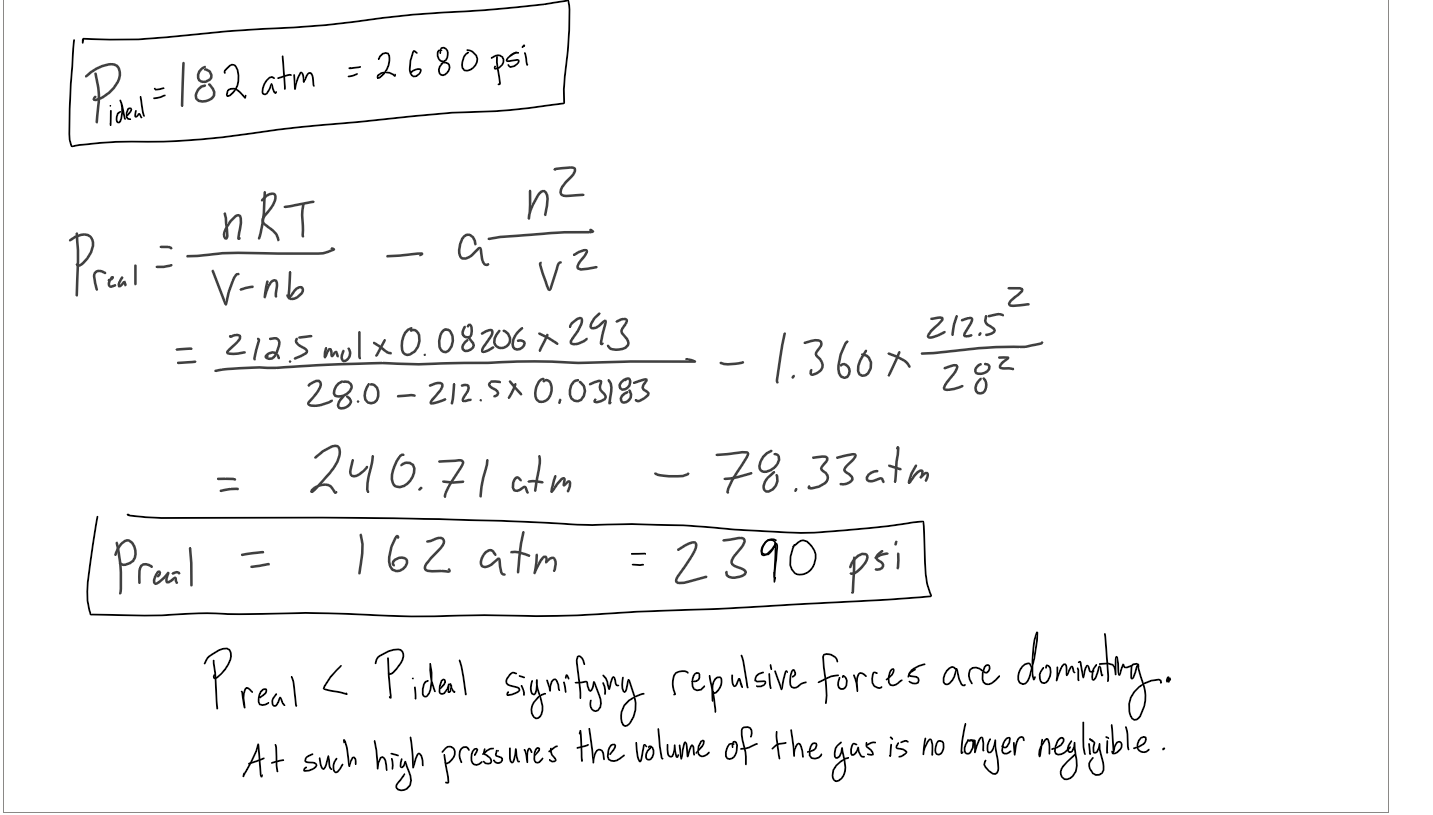 P_ideal = 182 atm = 2680 psi
P_real = nRT / (V-nb) - a n² / V²
= (212.5 mol x 0.08206 x 293) / (28.0 - 212.5 x 0.03183) - 1.360 x 212.5² / 28²
= 240.71 atm - 78.33 atm
P_real = 162 atm = 2390 psi
P real < P ideal signifying repulsive forces are dominating.
At such high pressures the volume of the gas is no longer negligible.